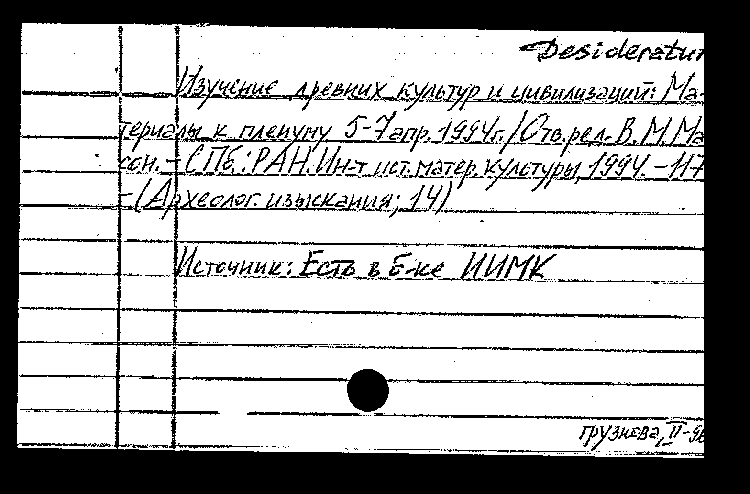 Desideratum
Изучение древних культур и цивилизаций: Ма-
териалы к пленуму 5-7 апр. 1994г. / Отв. ред. В.М. Мас
сон. - СПб.: РАН. Ин-т ист. матер. культуры, 1994. - 117
- (Археолог. изыскания; 14)
Источник: Есть в б-ке ИИМК
Грузнева, II-96